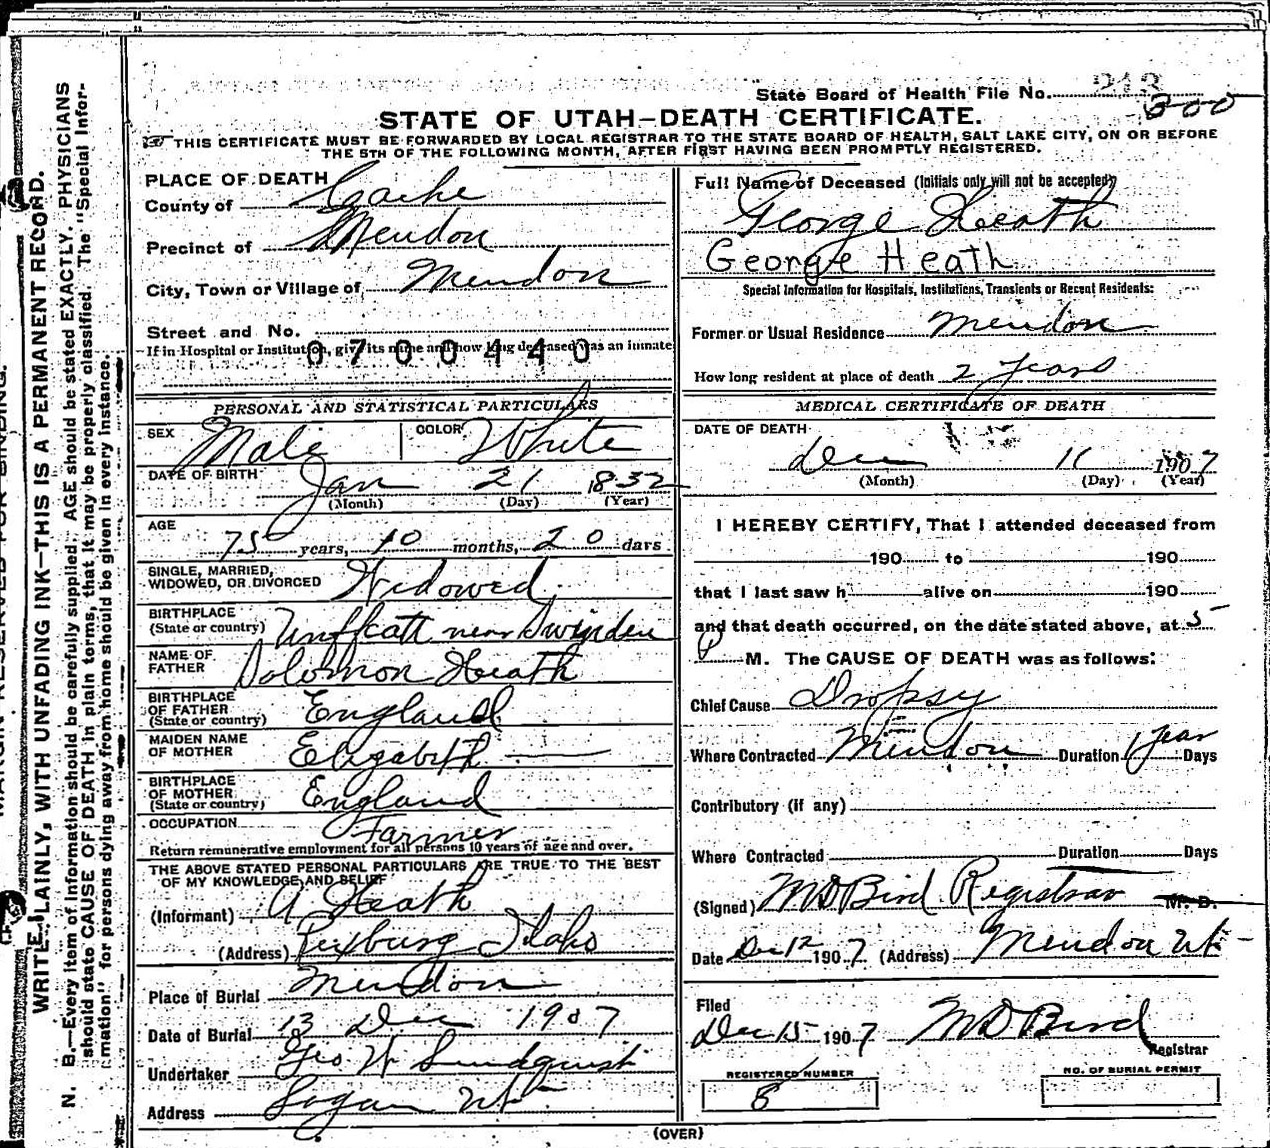 State Board of Health File No. 213
300
STATE OF UTAH—DEATH CERTIFICATE.
THIS CERTIFICATE MUST BE FORWARDED BY LOCAL REGISTRAR TO THE STATE BOARD OF HEALTH, SALT LAKE CITY, ON OR BEFORE
THE 5TH OF THE FOLLOWING MONTH, AFTER FIRST HAVING BEEN PROMPTLY REGISTERED.
PLACE OF DEATH
County of Cache
Precinct of Mendon
City, Town or Village of Mendon
Street and No.
If in Hospital or Institution, give its name and how long deceased was an inmate
0700440
PERSONAL AND STATISTICAL PARTICULARS
SEX Male COLOR White
DATE OF BIRTH Jan 21 1832
(Month) (Day) (Year)
AGE
75 years, 10 months, 20 days
SINGLE, MARRIED,
WIDOWED, OR DIVORCED Widowed
BIRTHPLACE
(State or country) near Swinden
NAME OF
FATHER Solomon Heath
BIRTHPLACE
OF FATHER
(State or country) England
MAIDEN NAME
OF MOTHER Elizabeth
BIRTHPLACE
OF MOTHER
(State or country) England
OCCUPATION Farmer
Return remunerative employment for all persons 10 years of age and over.
THE ABOVE STATED PERSONAL PARTICULARS ARE TRUE TO THE BEST
OF MY KNOWLEDGE AND BELIEF
(Informant) A Heath
(Address) Rexburg Idaho
Place of Burial Mendon
Date of Burial 13 Dec 1907
Undertaker Geo W Lundquist
Address Logan Ut
Full Name of Deceased (Initials only will not be accepted)
George Heath
George Heath
Special Information for Hospitals, Institutions, Transients or Recent Residents:
Former or Usual Residence Mendon
How long resident at place of death 2 Years
MEDICAL CERTIFICATE OF DEATH
DATE OF DEATH
Dec 11 1907
(Month) (Day) (Year)
I HEREBY CERTIFY, That I attended deceased from
190 to 190
that I last saw h alive on 190
and that death occurred, on the date stated above, at 5
P M. The CAUSE OF DEATH was as follows:
Chief Cause Dropsy
Where Contracted Mendon Duration 1 Year Days
Contributory (if any)
Where Contracted Duration Days
(Signed) M D Bird Registrar M. D.
Date Dec 12 1907 (Address) Mendon Ut
Filed
Dec 15 1907 M D Bird
Registrar
REGISTERED NUMBER
8
NO. OF BURIAL PERMIT
(OVER)
MARGIN RESERVED FOR BINDING.
WRITE PLAINLY, WITH UNFADING INK—THIS IS A PERMANENT RECORD.
N. B.—Every item of information should be carefully supplied. AGE should be stated EXACTLY. PHYSICIANS
should state CAUSE OF DEATH in plain terms, that it may be properly classified. The "Special Infor-
mation" for persons dying away from home should be given in every instance.